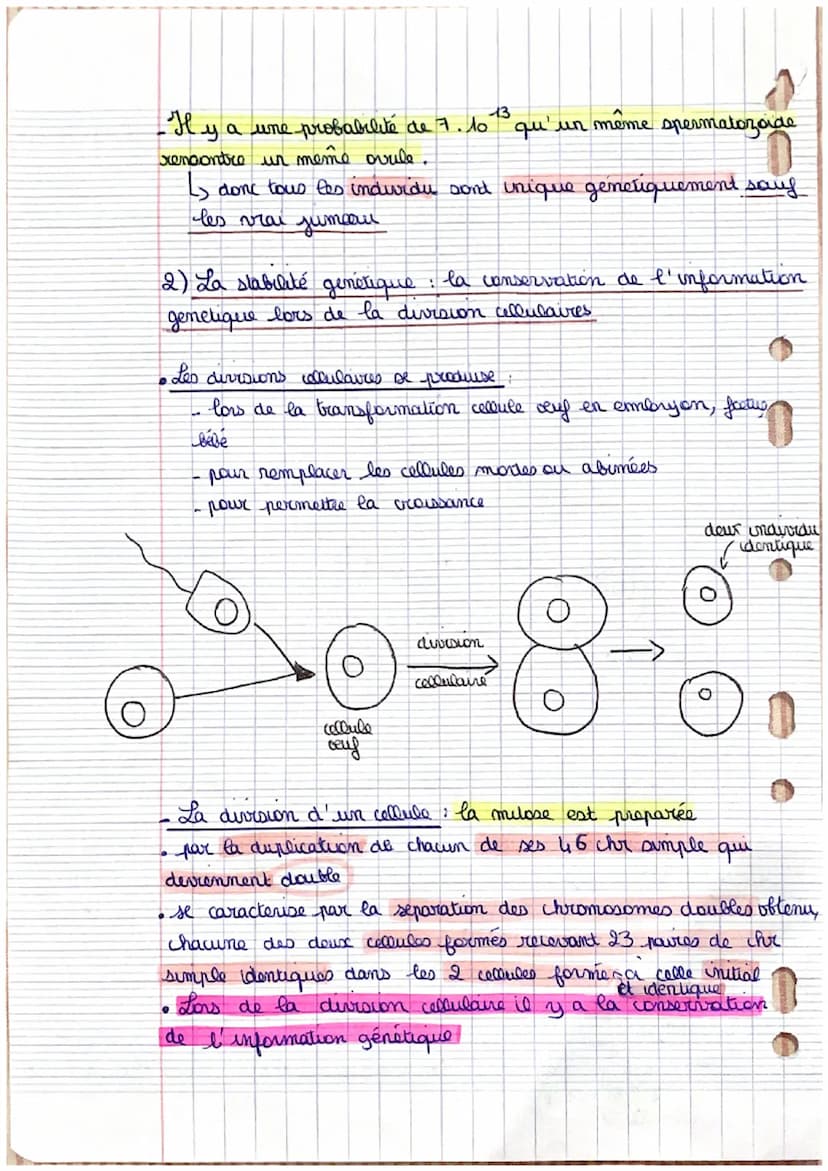 - Il y a une probabilité de 7.10^13 qu'un même spermatozoide
rencontre un même ovule.
↳ donc tous les individu sont unique génétiquement sauf
les vrai jumeau
2) La stabilité génétique : la conservation de l'information
genetique lors de la division cellulaires
• Les divisions cellulaires se produise :
- lors de la transformation cellule oeuf en embryon, foetus,
bébé
- pour remplacer les cellules modes ou abimées
- pour permettre la croissance
deux individu
identique
division
cellulaire
cellule
oeuf
- La division d'un cellule : la mitose est preparée
• par la duplication de chacun de ses 46 chr simple qui
deviennent double
• se caracterise par la séparation des chromosomes doubles obtenu,
chacune des deux cellules formés recevant 23 paires de chr
simple identiques dans les 2 cellules formé à celle initial
et identique
• Lors de la division cellulaire il y a la conservation
de l'information génétique